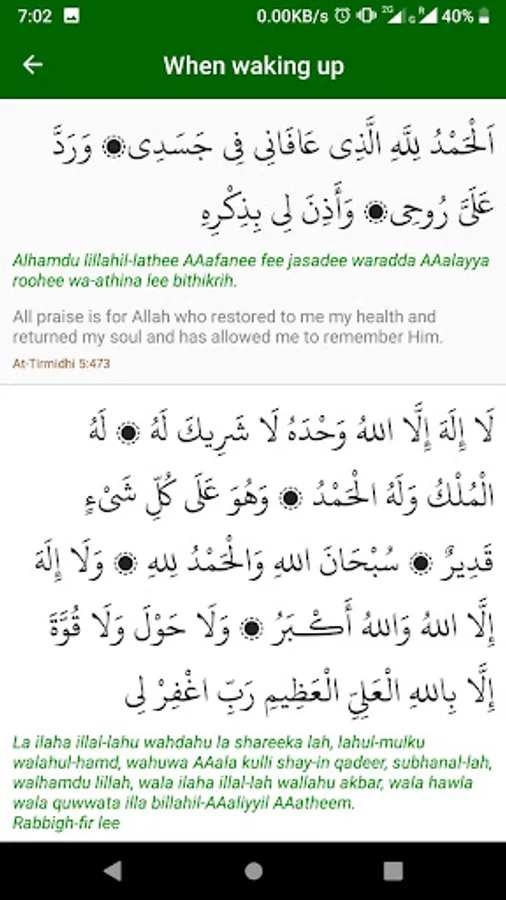 7:02 0.00KB/s 2G G R 40%
When waking up
اَلْحَمْدُ لِلَّهِ الَّذِى عَافَانِى فِى جَسَدِى۝ وَرَدَّ
عَلَىَّ رُوحِى۝ وَأَذِنَ لِى بِذِكْرِهِ
Alhamdu lillahil-lathee AAafanee fee jasadee waradda AAalayya
roohee wa-athina lee bithikrih.
All praise is for Allah who restored to me my health and
returned my soul and has allowed me to remember Him.
At-Tirmidhi 5:473
لَا إِلَهَ إِلَّا اللهُ وَحْدَهُ لَا شَرِيكَ لَهُ ۝ لَهُ
الْمُلْكُ وَلَهُ الْحَمْدُ ۝ وَهُوَ عَلَى كُلِّ شَىْءٍ
قَدِيرٌ ۝ سُبْحَانَ اللهِ وَالْحَمْدُ لِلهِ ۝ وَلَا إِلَهَ
إِلَّا اللهُ وَاللهُ أَكْبَرُ ۝ وَلَا حَوْلَ وَلَا قُوَّةَ
إِلَّا بِاللهِ الْعَلِيِّ الْعَظِيمِ رَبِّ اغْفِرْ لِى
La ilaha illal-lahu wahdahu la shareeka lah, lahul-mulku
walahul-hamd, wahuwa AAala kulli shay-in qadeer, subhanal-lah,
walhamdu lillah, wala ilaha illal-lah wallahu akbar, wala hawla
wala quwwata illa billahil-AAaliyyil AAatheem.
Rabbigh-fir lee